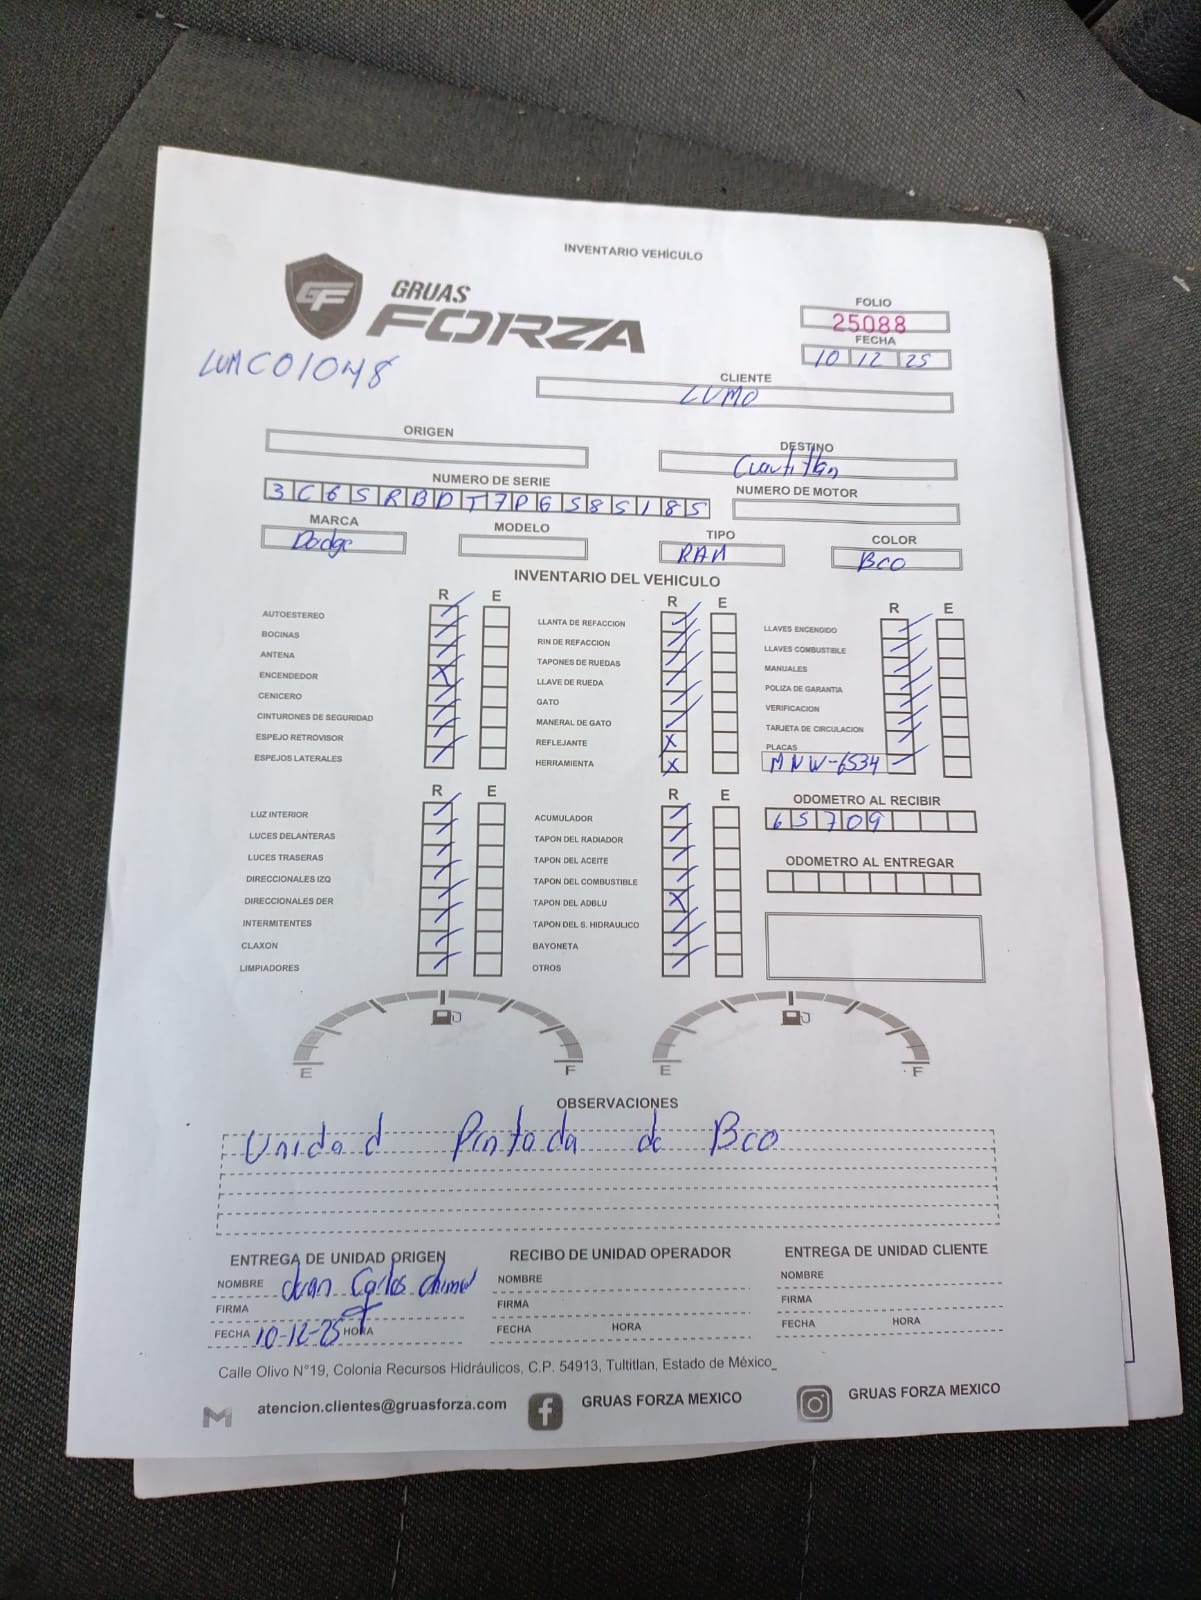 INVENTARIO VEHÍCULO
GF GRUAS FORZA
FOLIO
25088
FECHA
10 12 25
LUMC01048
CLIENTE
LUMO
ORIGEN
DESTINO
Cuautitlan
NUMERO DE SERIE
3C6SRBDT7PG585185
NUMERO DE MOTOR
MARCA
Dodge
MODELO
TIPO
RAM
COLOR
Bco
INVENTARIO DEL VEHICULO
R E
AUTOESTEREO
BOCINAS
ANTENA
ENCENDEDOR X
CENICERO
CINTURONES DE SEGURIDAD
ESPEJO RETROVISOR
ESPEJOS LATERALES
R E
LLANTA DE REFACCION
RIN DE REFACCION
TAPONES DE RUEDAS
LLAVE DE RUEDA
GATO
MANERAL DE GATO
REFLEJANTE X
HERRAMIENTA X
R E
LLAVES ENCENDIDO
LLAVES COMBUSTIBLE
MANUALES
POLIZA DE GARANTIA
VERIFICACION
TARJETA DE CIRCULACION
PLACAS
MNW-6534
R E
LUZ INTERIOR
LUCES DELANTERAS
LUCES TRASERAS
DIRECCIONALES IZQ
DIRECCIONALES DER
INTERMITENTES
CLAXON
LIMPIADORES
R E
ACUMULADOR
TAPON DEL RADIADOR
TAPON DEL ACEITE
TAPON DEL COMBUSTIBLE
TAPON DEL ADBLU X
TAPON DEL S. HIDRAULICO
BAYONETA
OTROS
ODOMETRO AL RECIBIR
65709
ODOMETRO AL ENTREGAR
E F
E F
OBSERVACIONES
Unidad Pintada de Bco
ENTREGA DE UNIDAD ORIGEN
NOMBRE Juan Carlos
FIRMA
FECHA 10-12-25 HORA
RECIBO DE UNIDAD OPERADOR
NOMBRE
FIRMA
FECHA HORA
ENTREGA DE UNIDAD CLIENTE
NOMBRE
FIRMA
FECHA HORA
Calle Olivo N°19, Colonia Recursos Hidráulicos, C.P. 54913, Tultitlan, Estado de México_
atencion.clientes@gruasforza.com
GRUAS FORZA MEXICO
GRUAS FORZA MEXICO